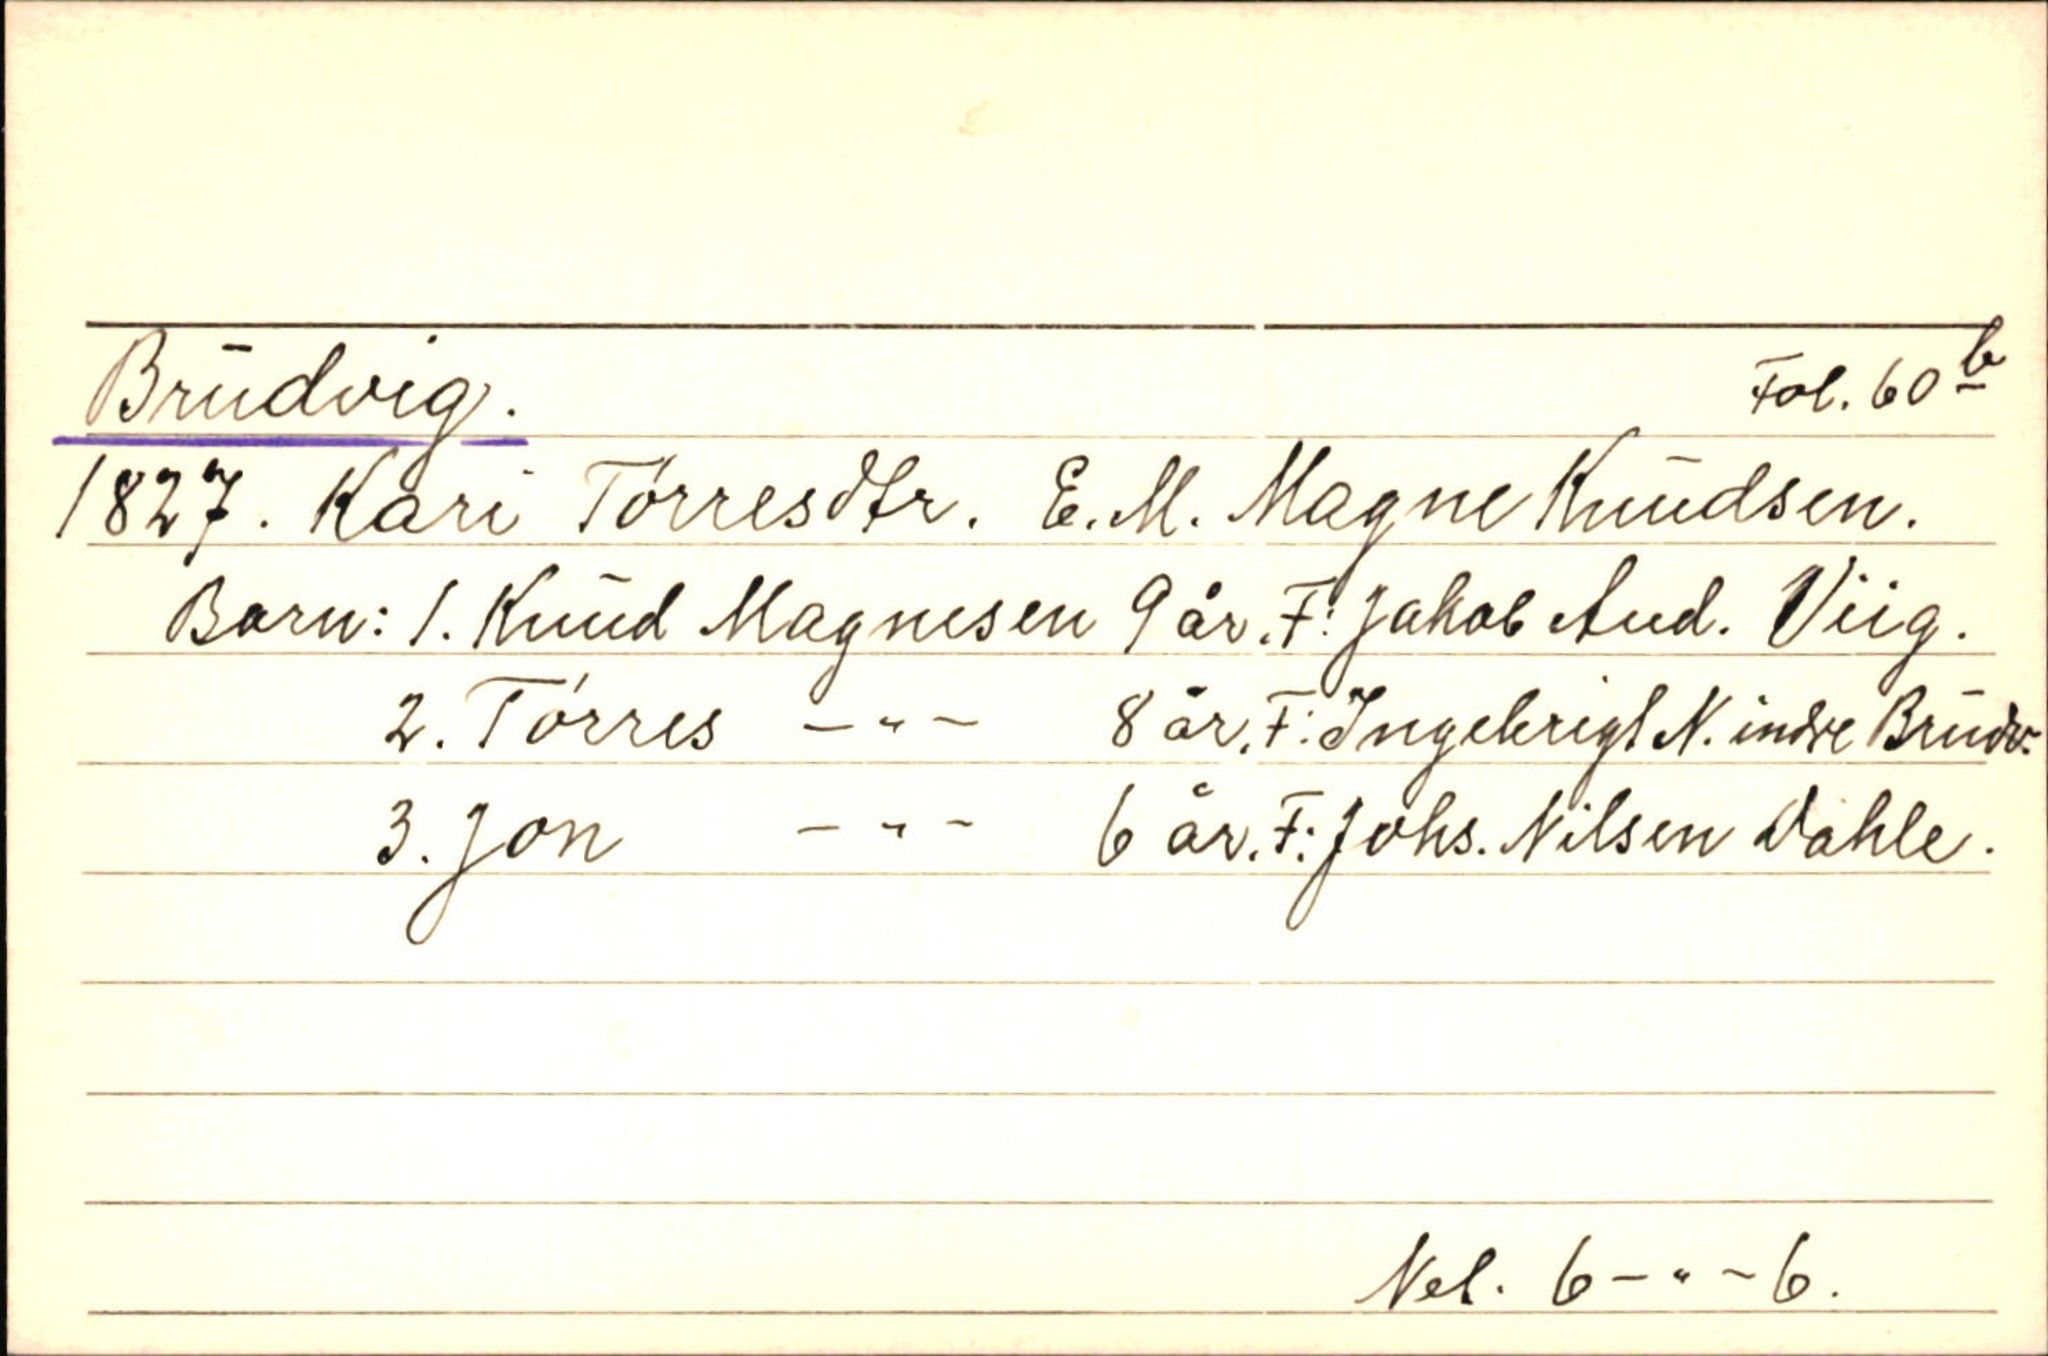 Brūdvig. Fol. 60 b
1827. Kari Tórresdtr. E. M. Magne Knūdsen.
Born: 1. Knūd Magnesen 9 år. F: Jakob And. Viig.
2. Tórres — " — 8 år. F: Ingebrigt N. indre Brūdv.
3. Jon — " — 6 år. F: Johs. Nilsen Dahle.
Net. 6 — " — 6.